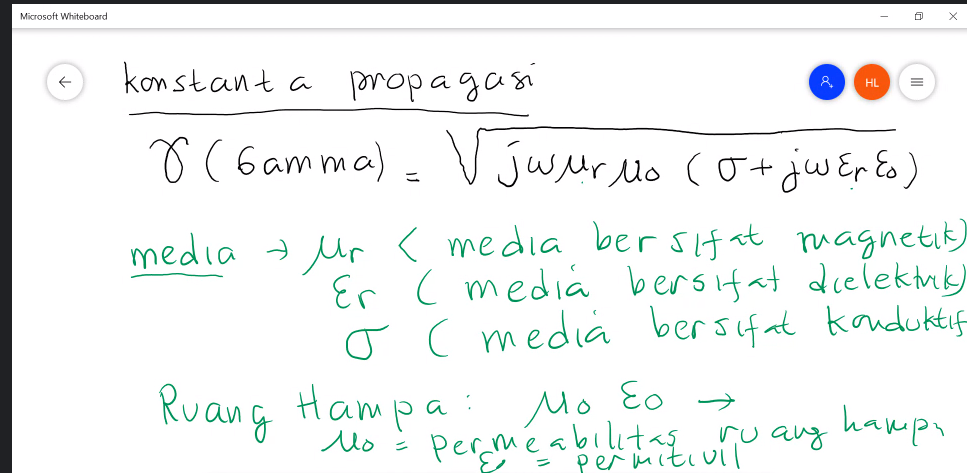 Microsoft Whiteboard
HL
konstanta propagasi
γ (Gamma) = √jωμrμo (σ+jωεrεo)
media → μr ( media bersifat magnetik)
εr ( media bersifat dielektrik)
σ ( media bersifat konduktif
Ruang Hampa: μo εo →
μo = permeabilitas ruang hampa
ε = permitivil